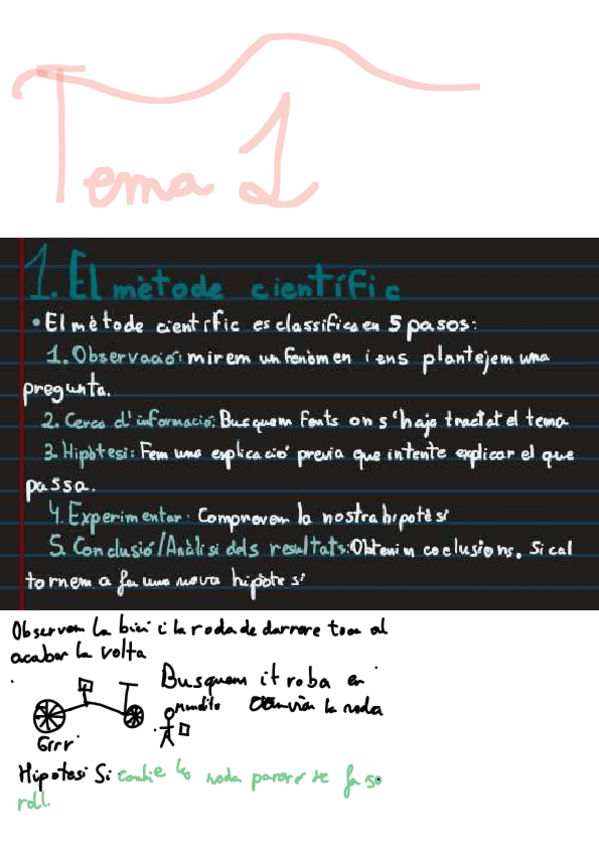 Tema 1
1. El mètode científic
• El mètode científic es classifica en 5 pasos:
1. Observació: mirem un fenòmen i ens plantejem una
pregunta.
2. Cerca d'informació: Busquem fonts on s'haja tractat el tema
3. Hipòtesi: Fem una explicació previa que intente explicar el que
passa.
4. Experimentar: Comprovem la nostra hipotèsi
5. Conclusió/Anàlisi dels resultats: Obtenim coclusions. Si cal
tornem a fer una nova hipòtesi
Observem la bici i la roda de darrere toca al
acabar la volta
Busquem i troba en
la roda
Grrr
Hipotesi Si la roda parará de fa so
roll